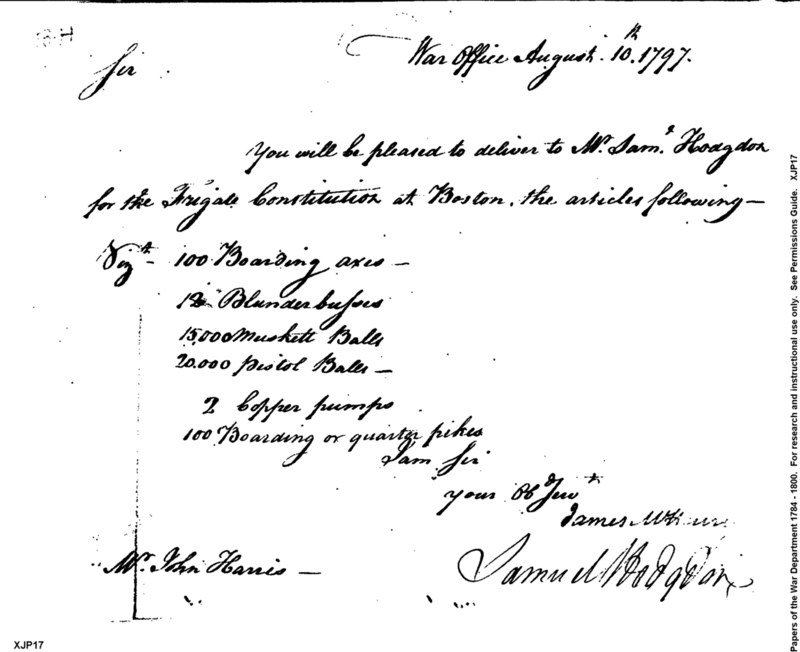 War Office August 10.th 1797.
Sir
You will be pleased to deliver to Mr. Sam.l Hodgdon
for the Frigate Constitution at Boston, the articles following —
Vizt. 100 Boarding axes —
12 Blunderbusses
15,000 Muskett Balls
20,000 Pistol Balls —
2 Copper pumps
100 Boarding or quarter pikes
I am Sir
your Obd Servt
James McHenry
Mr. John Harris —
Samuel Hodgdon
XJP17
Papers of the War Department 1784 - 1800. For research and instructional use only. See Permissions Guide. XJP17